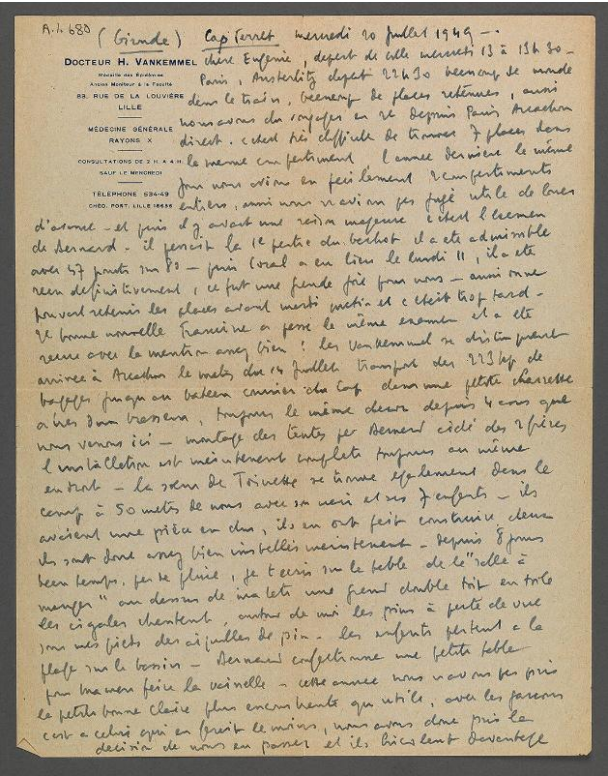 A.h. 680
(Gironde) Cap Ferret mercredi 20 Juillet 1949 -.
DOCTEUR H. VANKEMMEL
Médaille des Épidémies
Ancien Moniteur à la Faculté
83, RUE DE LA LOUVIÈRE
LILLE
MÉDECINE GÉNÉRALE
RAYONS X
CONSULTATIONS DE 2 H. A 4 H.
SAUF LE MERCREDI
TÉLÉPHONE 534-43
CHÈQ. POST. LILLE
chère Eugénie, départ de Lille mercredi 13 à 13h30 -
Paris, Austerlitz départ 22h30 beaucoup de monde
dans le train, beaucoup de places retenues, aussi
nous avons du voyager en 2e depuis Paris Arcachon
direct. c'était très difficile de trouver 7 places dans
le même compartiment, l'année dernière le même
jour nous avions eu facilement 2 compartiments
entiers, aussi nous n'avions pas jugé utile de louer
d'avance - et puis il y avait une raison majeure c'était l'examen
de Bernard - il passait la 1e partie du bachot il a été admissible
avec 47 points sur 80 - puis l'oral a eu lieu le lundi 11, il a été
reçu définitivement, ce fut une grande joie pour nous - aussi on ne
pouvait retenir les places avant mardi matin et c'était trop tard -
2e bonne nouvelle Francine a passé le même examen et a été
reçue avec la mention assez bien! les Vankemmel se distinguent
arrivée à Arcachon le matin du 14 Juillet transport des 223 kg de
bagages jusqu'au bateau courrier du Cap dans une petite charrette
à bras d'un brasseur, toujours le même depuis 4 ans que
nous venons ici - montage des tentes par Bernard aidé des 2 frères
l'installation est maintenant complète toujours au même
endroit - la soeur de Toinette se trouve également dans le
camp à 50 mètres de nous avec son mari et ses 7 enfants - ils
avaient une pièce en dur, ils en ont fait construire deux
ils sont donc assez bien installés maintenant - depuis 8 jours
beau temps, pas de pluie, je t'écris sur la table de la "salle à
manger" au dessus de ma tête une grand double toit en toile
les cigales chantent, autour de moi les pins à perte de vue
sous mes pieds des aiguilles de pin - les enfants partent à la
plage sur le bassin - Bernard confectionne une petite table
pour maman faire la vaisselle - cette année nous n'avons pas pris
la petite bonne Claire plus encombrante qu'utile, avec les garçons
c'est à celui qui en ferait le moins, nous avons donc pris la
décision de nous en passer et ils bricolent davantage